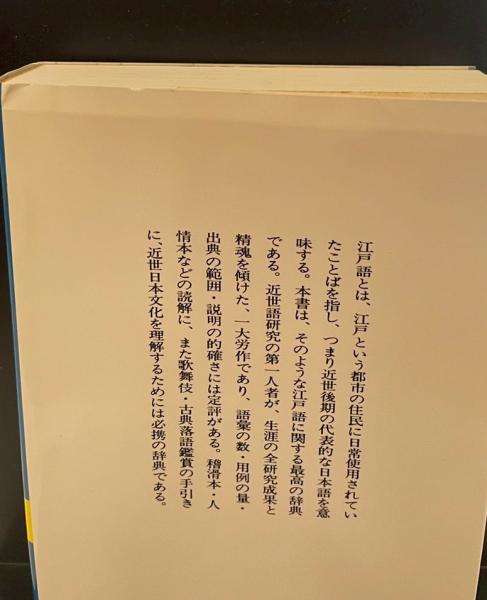 江戸語とは、江戸という都市の住民に日常使用されてい
たことばを指し、つまり近世後期の代表的な日本語を意
味する。本書は、そのような江戸語に関する最高の辞典
である。近世語研究の第一人者が、生涯の全研究成果と
精魂を傾けた、一大労作であり、語彙の数・用例の量・
出典の範囲・説明の的確さには定評がある。稽滑本・人
情本などの読解に、また歌舞伎・古典落語鑑賞の手引き
に、近世日本文化を理解するためには必携の辞典である。